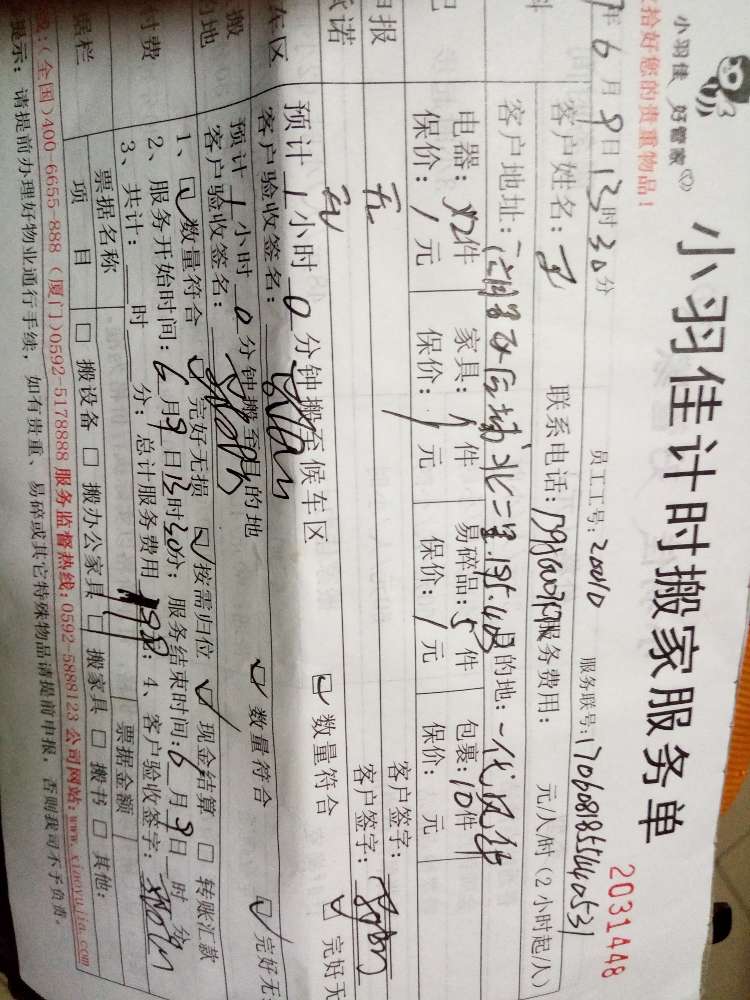 小羽佳 好管家
拾好您的贵重物品!
小羽佳计时搬家服务单
2031448
年6月9日13时30分
员工工号: 20010
服务联号: 1706081855440531
客户姓名: 王
联系电话:
服务费用: 元/人/时(2小时起/人)
客户地址:
目的地:
电器: 2件 家具: 1件 易碎品: 5件 包裹: 10件
保价: / 元 保价: / 元 保价: / 元 保价: 元
申报
无
客户签字:
承诺
无
客户签字:
车区
预计1小时0分钟搬至候车区
数量符合
完好无
客户验收签名:
搬
的地
预计1小时0分钟搬至目的地
数量符合
完好无
客户验收签名:
时费
1、 数量符合 完好无损 按需归位 现金结算 转账汇款
2、服务开始时间: 6月9日13时30分; 服务结束时间: 6月9日 时 分
3、共计: 时 分; 总计服务费用 198; 4、客户验收签字:
据栏
票据名称
票据金额
项目
搬设备 搬办公家具 搬家具 搬书 其他:
(全国)400-6655-888 (厦门)0592-5178888 服务监督热线: 0592-5888123 公司网站: www.xiaoyujia.com
提示: 请提前办理好物业通行手续, 如有贵重、易碎或其它特殊物品请提前申报, 否则我司不予负责。